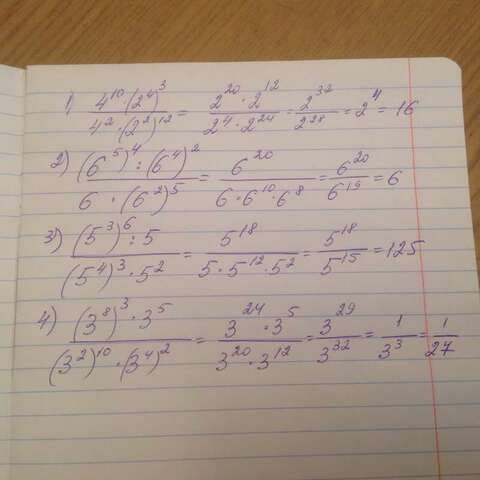 1) (4^10 · (2^4)^3) / (4^2 · (2^2)^12) = (2^20 · 2^12) / (2^4 · 2^24) = 2^32 / 2^28 = 2^4 = 16
2) ((6^5)^4 : (6^4)^2) / (6 · (6^2)^5) = 6^20 / (6 · 6^10 · 6^8) = 6^20 / 6^19 = 6
3) ((5^3)^6 : 5) / ((5^4)^3 · 5^2) = 5^18 / (5 · 5^12 · 5^2) = 5^18 / 5^15 = 125
4) ((3^8)^3 · 3^5) / ((3^2)^10 · (3^4)^2) = (3^24 · 3^5) / (3^20 · 3^12) = 3^29 / 3^32 = 1 / 3^3 = 1 / 27